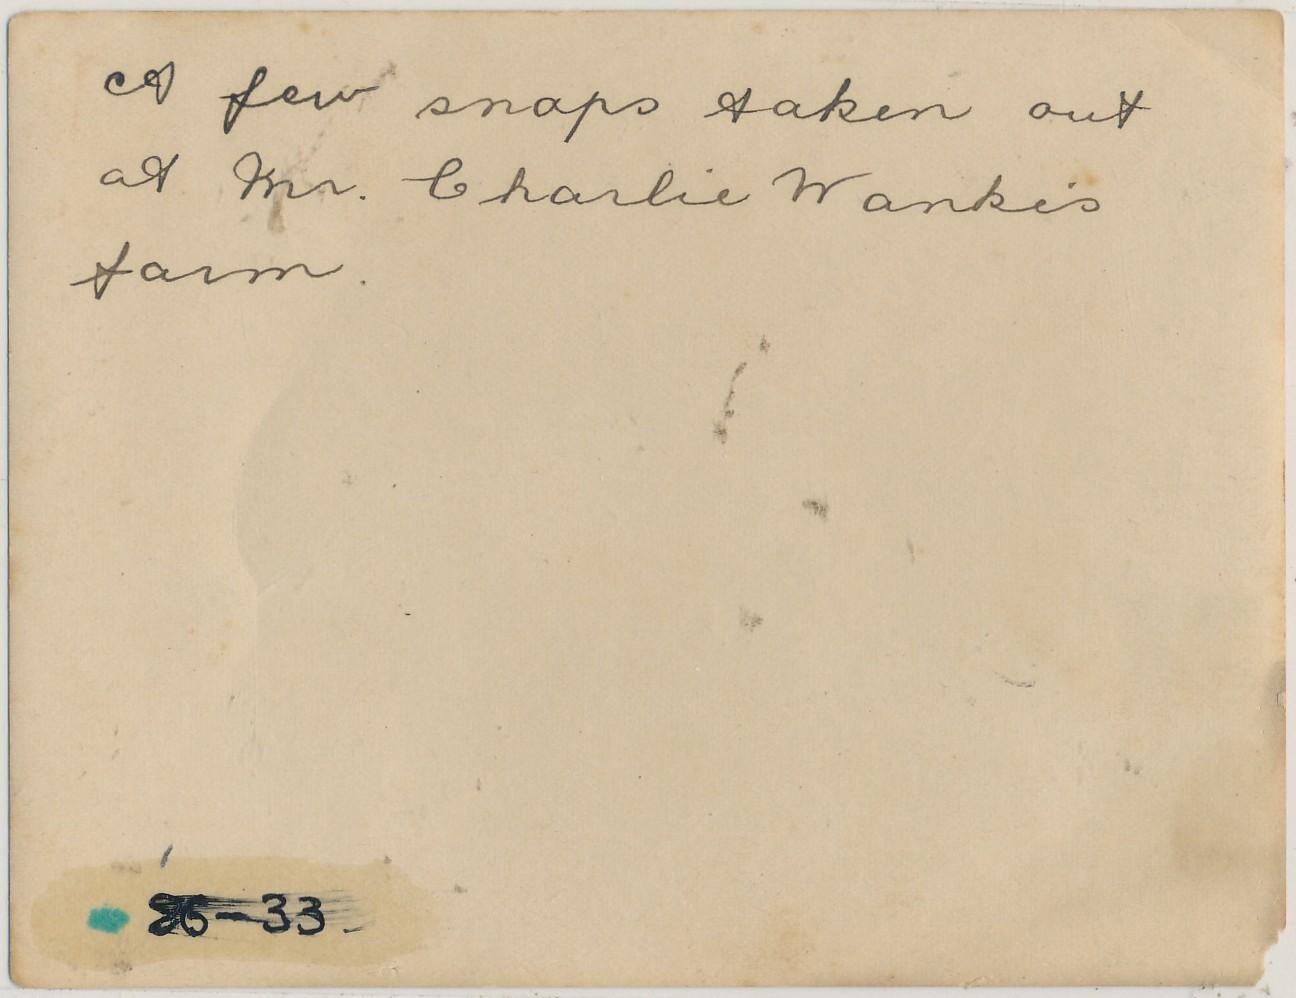 A few snaps taken out
at Mr. Charlie Wankis
farm.
86-33.